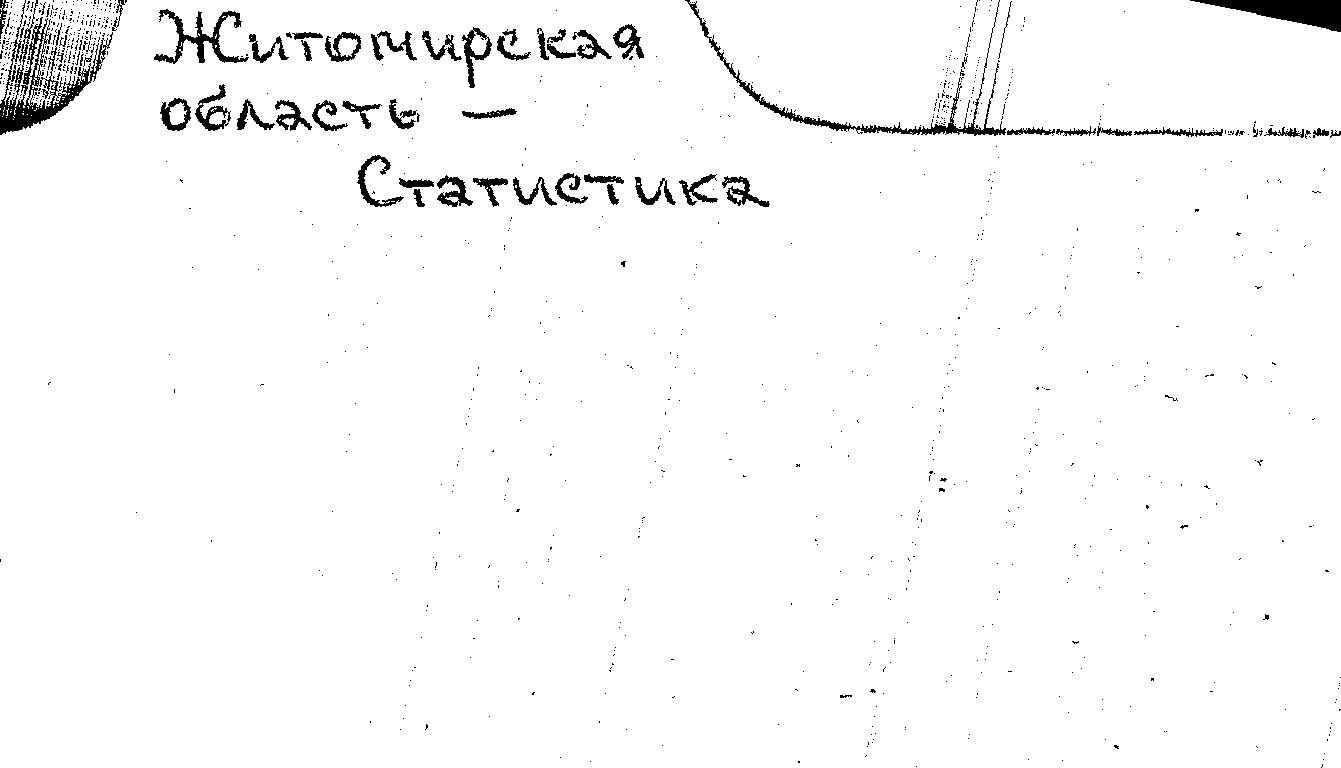 Житомирская
область —
Статистика